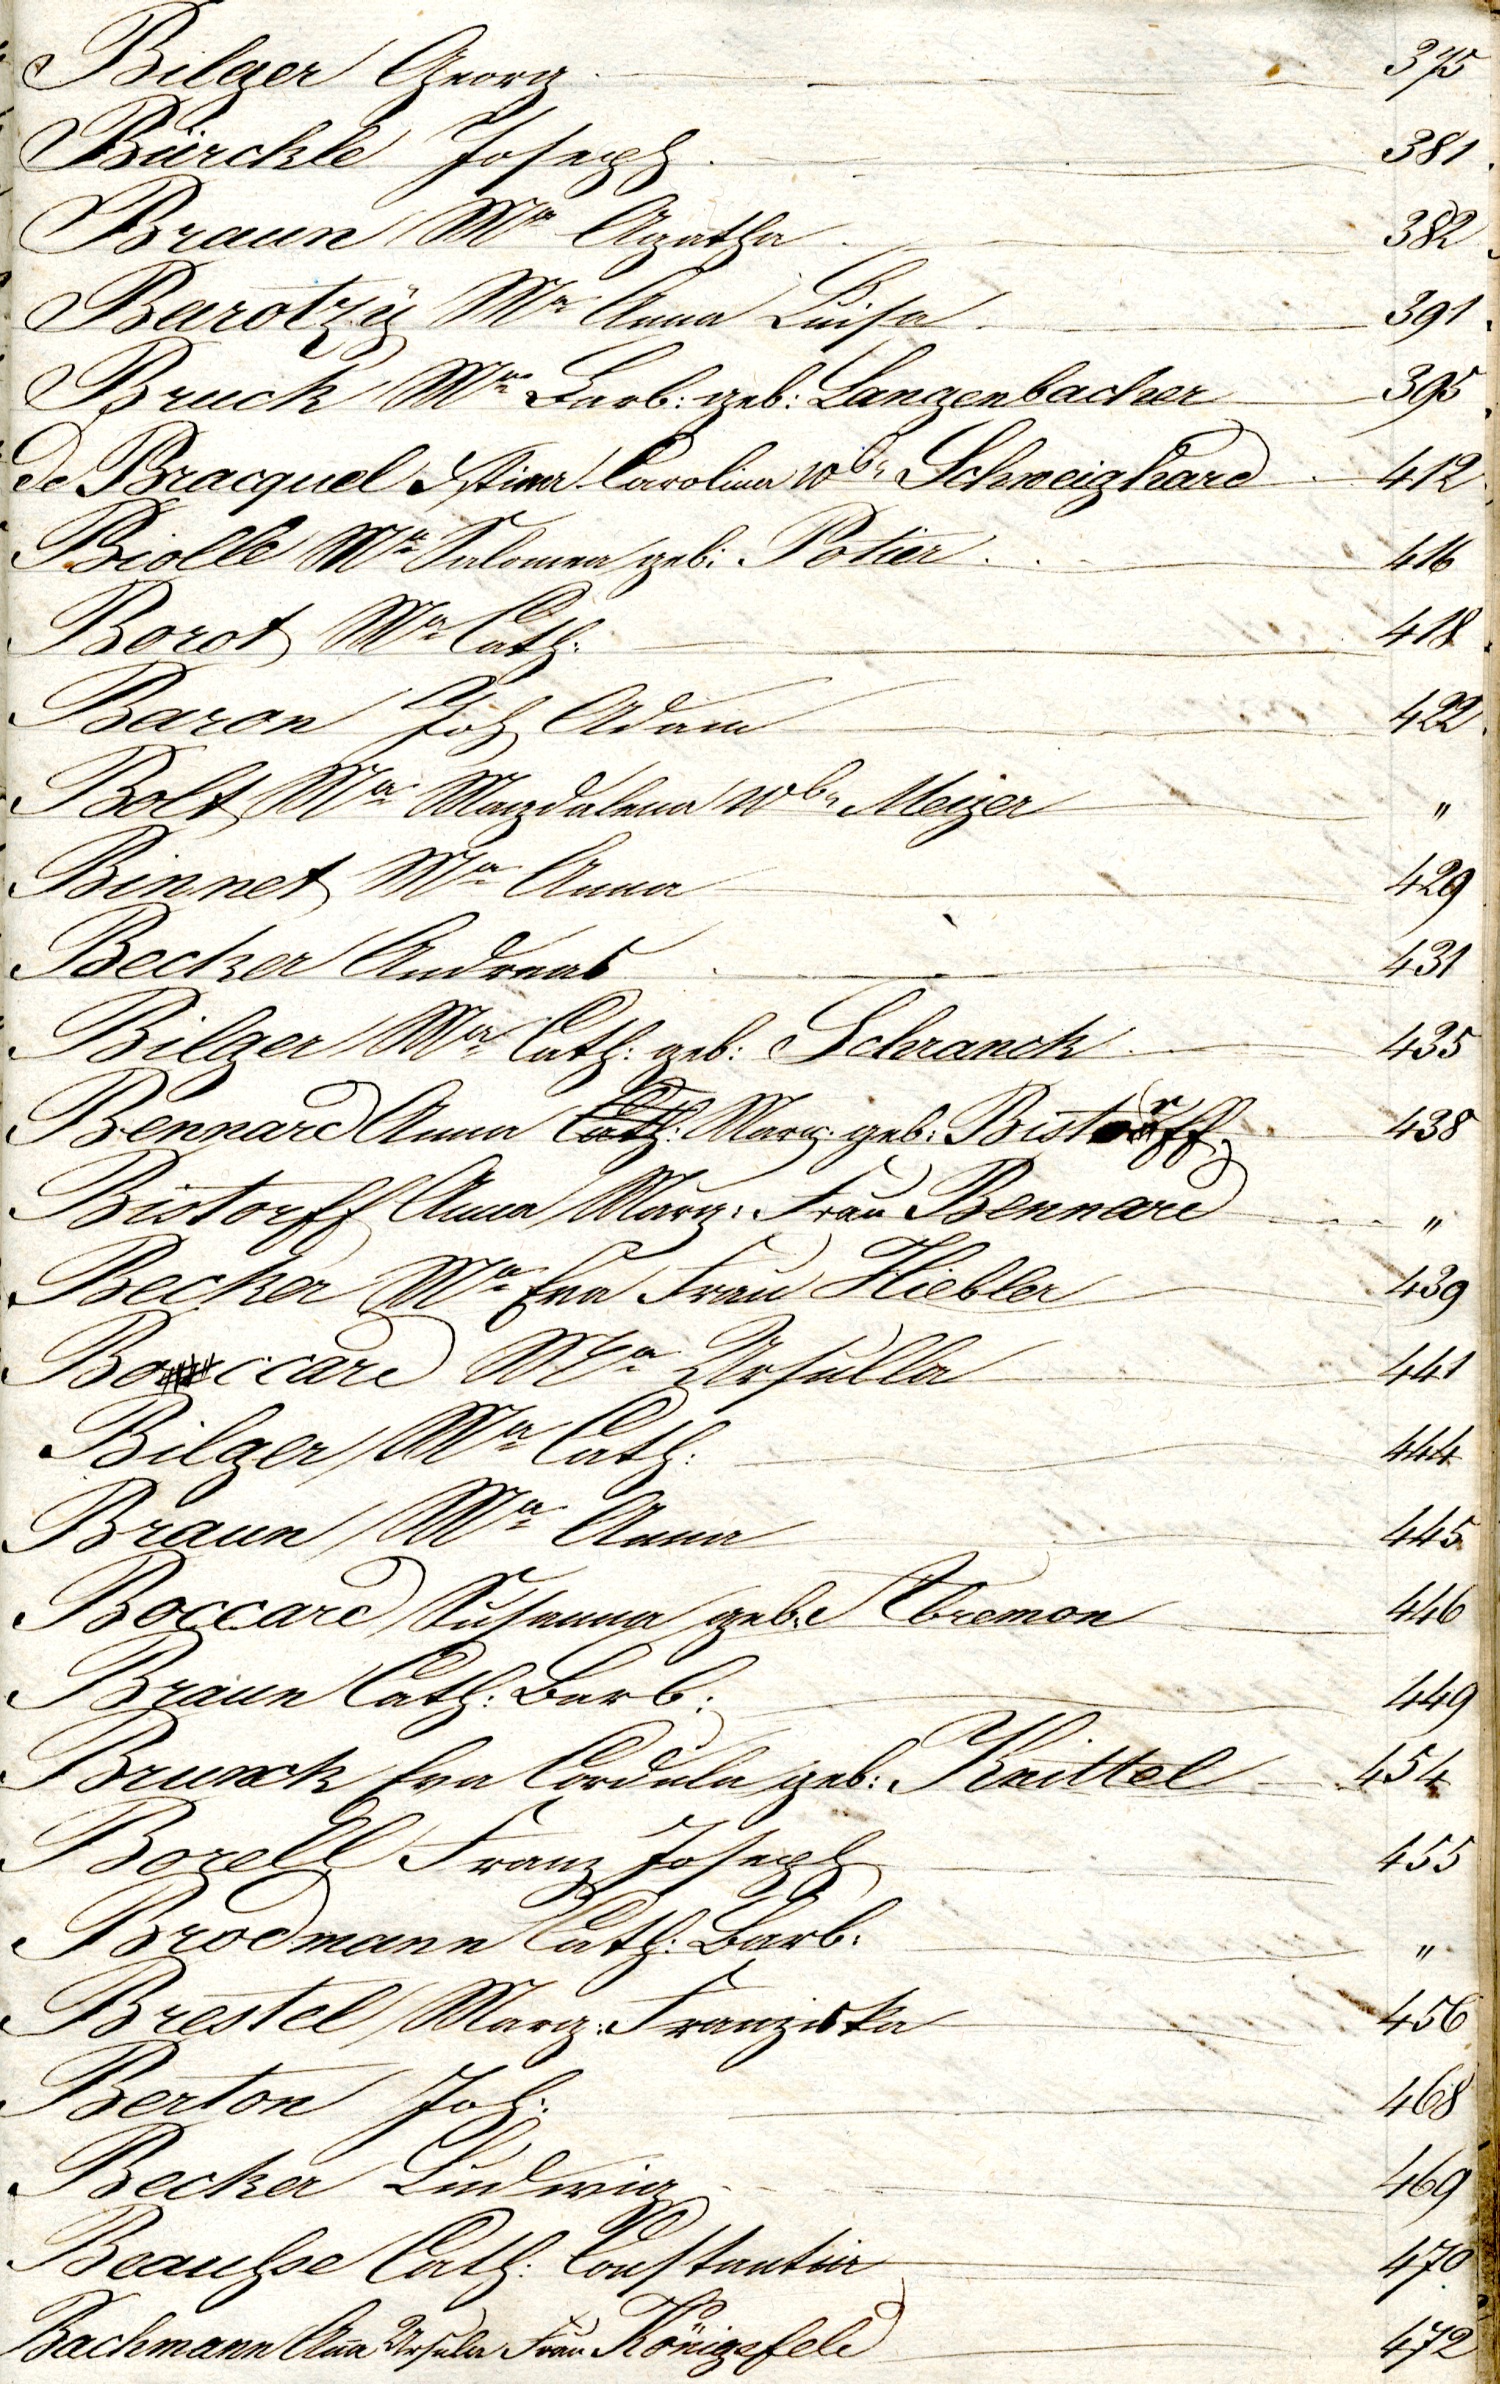 Bilger Georg 375
Bürckle Joseph 381
Braun Ma Agatha 382
Barotzÿ Ma Anna Luisa 391
Bruck Ma Barb: geb: Langenbacher 395
de Bracquel Carolina Schweighard 412
Biolle Ma Salomea geb: Potier 416
Borot Ma Cath: 418
Baron Joh Adam 422
Bolt Ma Magdalena Meizer "
Binnet Ma Anna 429
Becker Andreas 431
Bilger Ma Cath: geb: Schranck 435
Bennard Anna Cath: Marg: geb: Bistorff 438
Bistorff Anna Marg: Frau Bennard "
Becker Ma Eva Frau Hiebler 439
Boccard Ma Ursulla 441
Bilger Ma Cath: 444
Braun Ma Anna 445
Boccard Susanna geb: Abremon 446
Braun Cath: Barb: 449
Brunck Eva Cordula geb: Knittel 454
Borell Franz Joseph 455
Brodmann Cath: Barb: "
Brestel Marg: Franziska 456
Berton Joh: 468
Becker Ludwig 469
Cath: Constantia 470
Bachmann Ana Ursula Frau Königsfeld 472